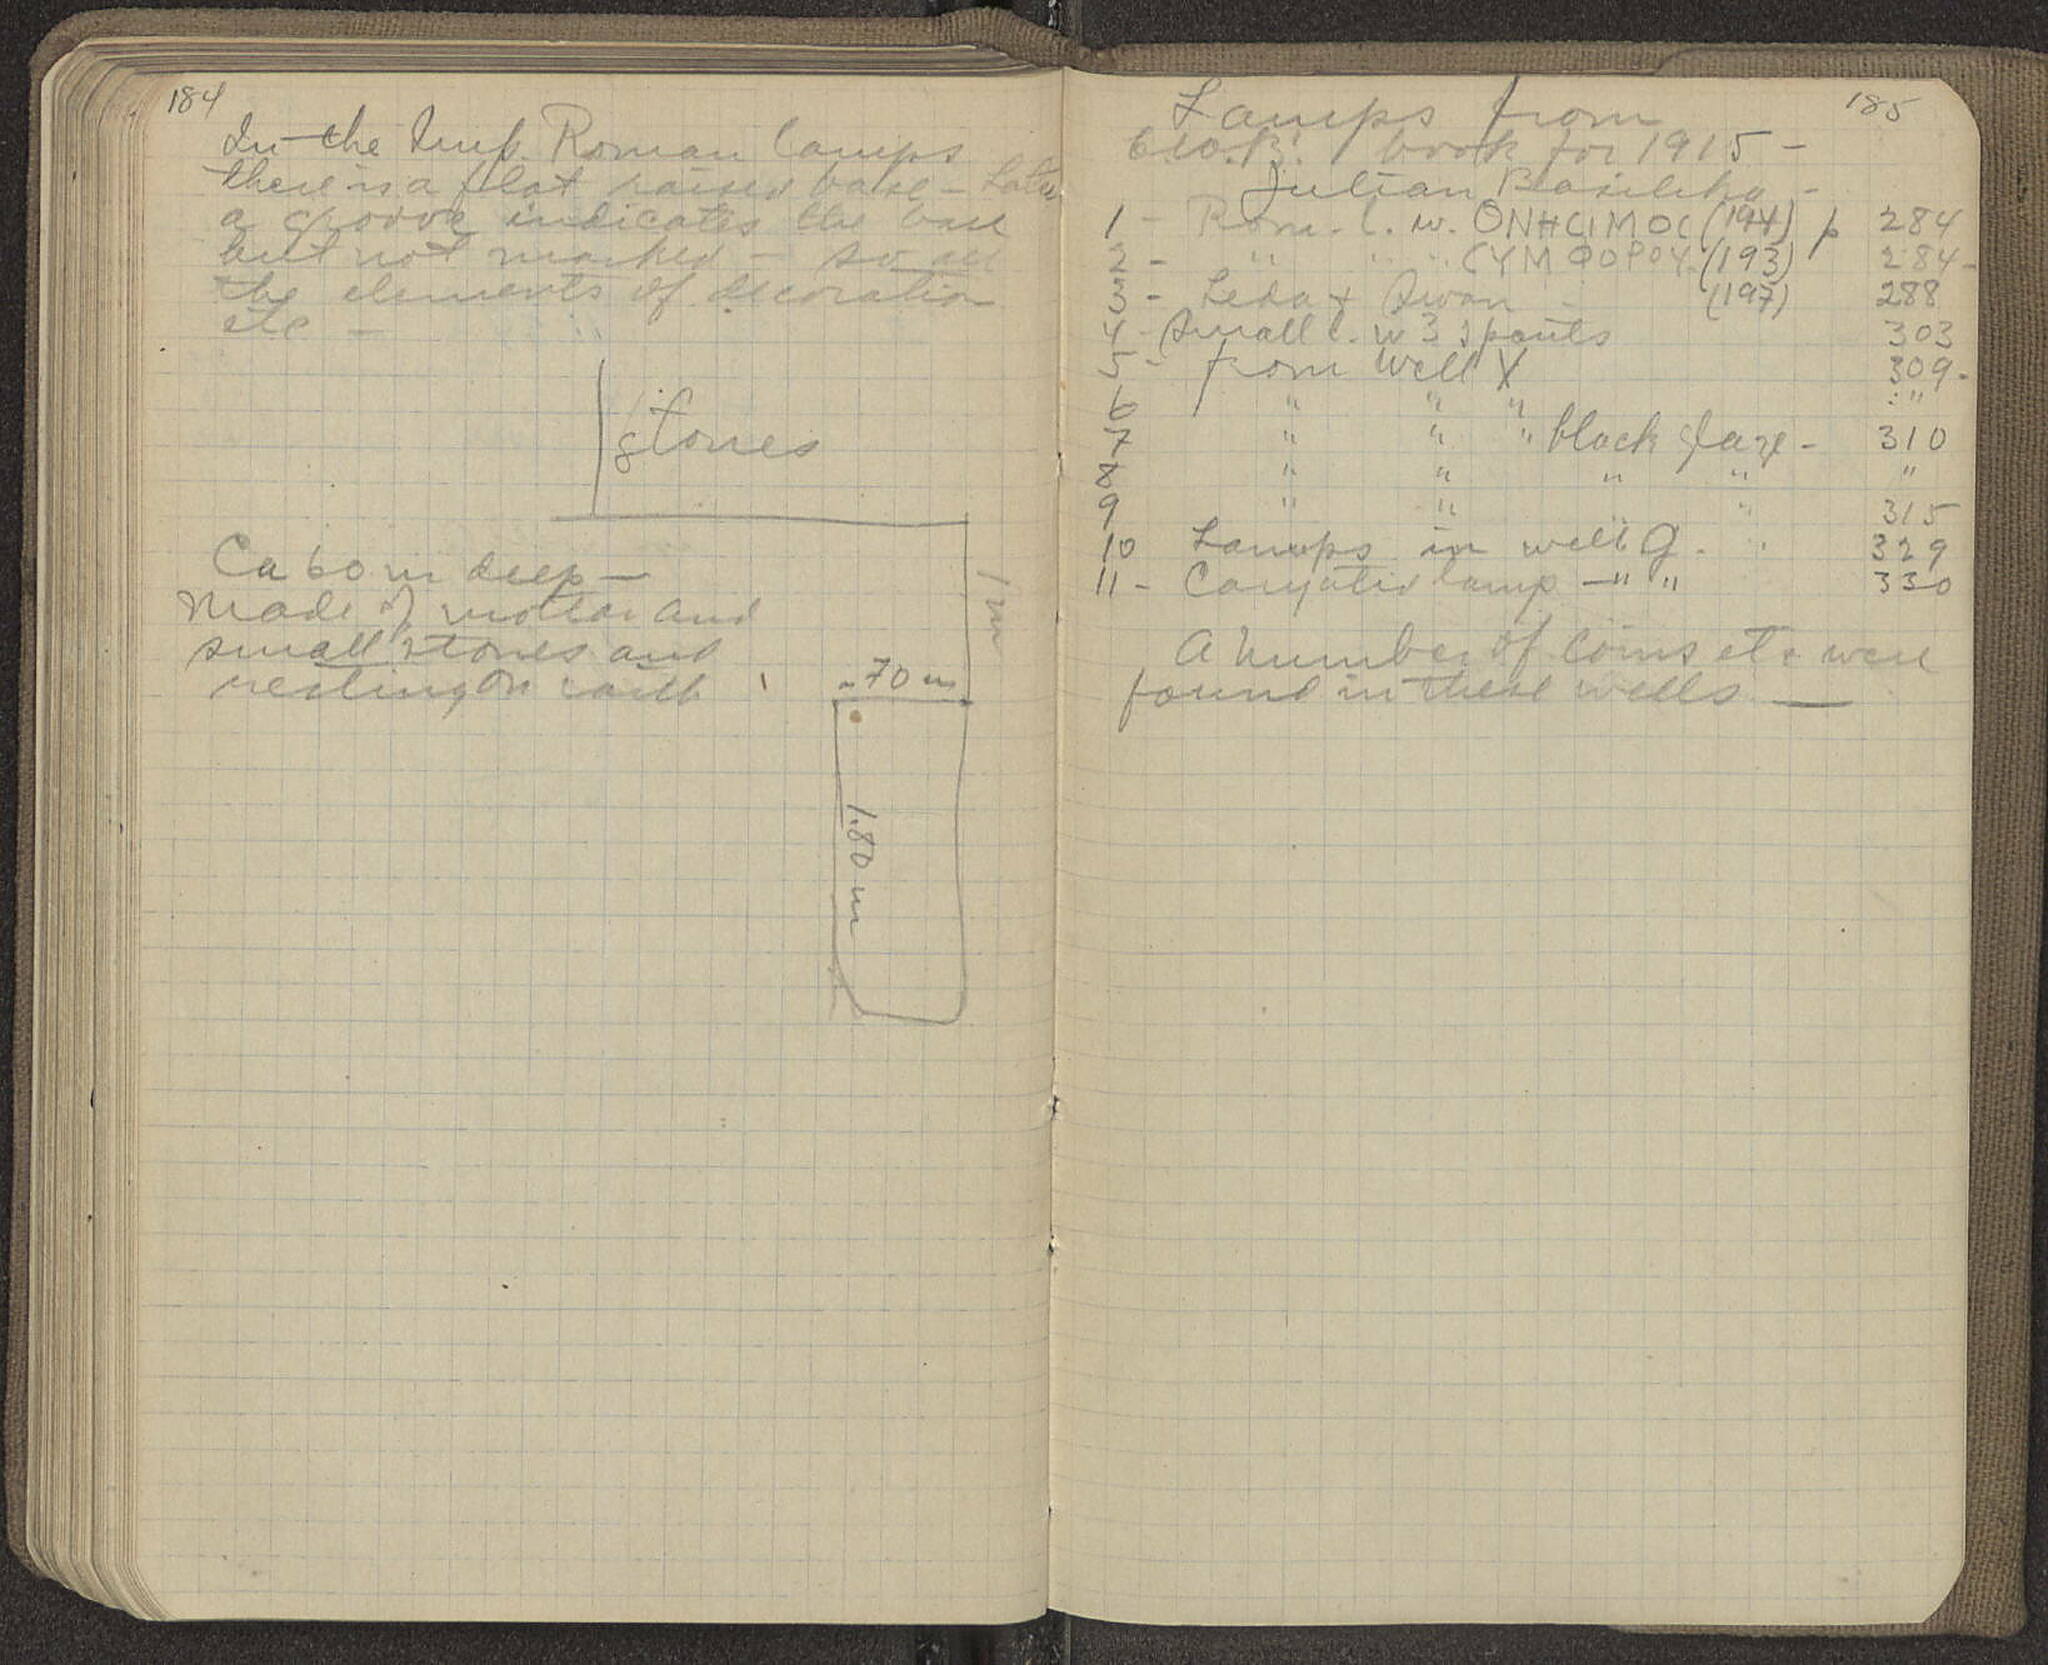 184
In the Imp. Roman lamps
there is a flat raised base - Later
a groove indicates the base
but not marked - so all
the elements of decoration
etc -
stones
Ca 60 m deep -
Made of mortar and
small stones and
resting on earth
1 m
.70 m
1.80 m
185
Lamps from
book for 1915 -
Julian Basilika -
1 - Rom. l. w. ONHCIMOC (194) p 284
2 - " " " CYMΦOPOY (193) 284 -
3 - Leda + Swan - (197) 288
4 - Small l. w 3 spouts 303
5 - from Well X 309 -
6 " " " "
7 " " " black glaze - 310
8 " " " " "
9 " " " " 315
10 Lamps in well g. 329
11 - Caryatid lamp - " " 330
A number of coins etc were
found in these wells —